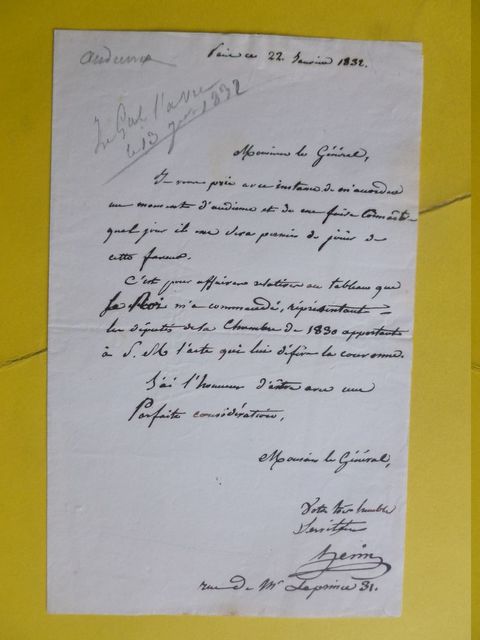 audience
Paris ce 22 Janvier 1832.
le 13 1832
Monsieur le Général,
Je vous prie avec instance de m'accorder
un moment d'audience et de me faire connaître
quel jour il me sera permis de jouir de
cette faveur.
C'est pour affaires relatives au tableau que
le Roi m'a commandé, représentant
les députés de la Chambre de 1830 apportant
à S. M l'acte qui lui défère la couronne.
J'ai l'honneur d'être avec une
Parfaite considération,
Monsieur le Général,
Votre très humble
Serviteur
rue de Mr Leprince 31.